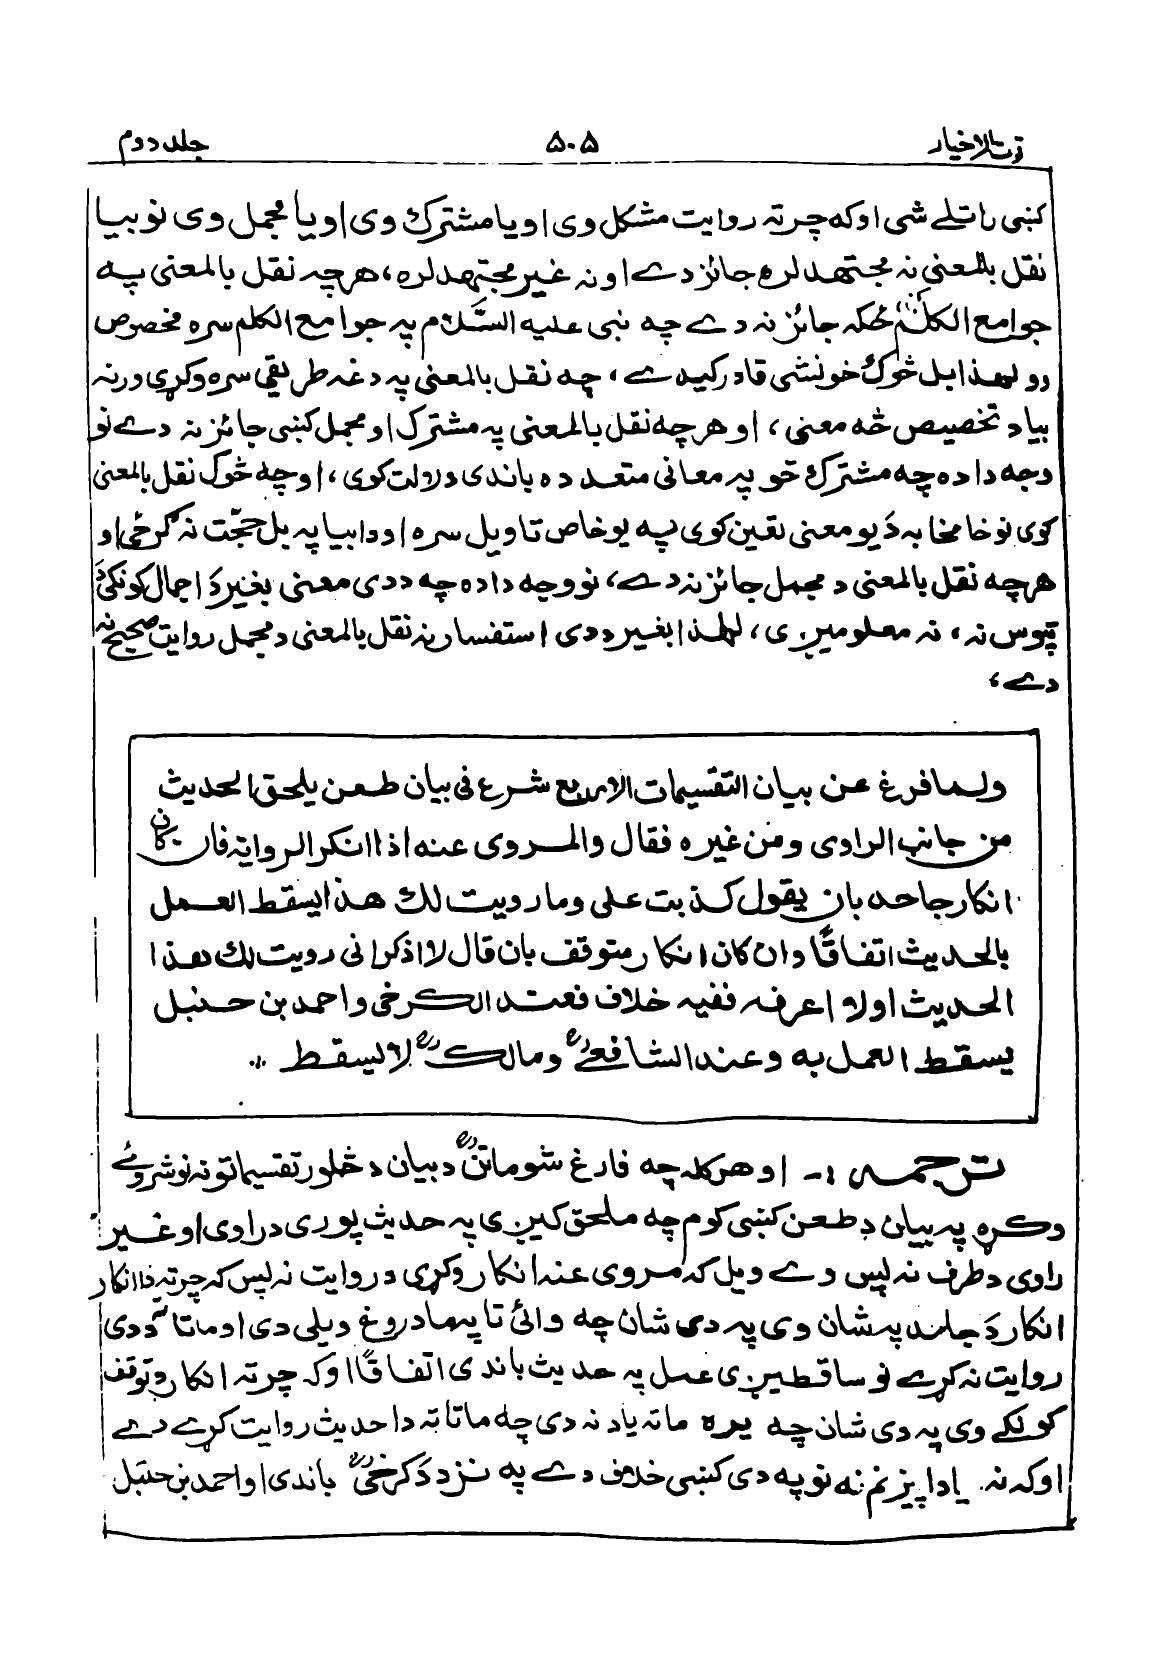 قوت الاخیار ۵۰۵ جلد دوم
کښی راتلے شی اوکه چرته روایت مشکل وی اویا مشترک وی اویا مجمل وی نوبیا
نقل بالمعنی نه مجتهد لره جائز دے او نه غیر مجتهد لره، هرچه نقل بالمعنی په
جوامع الکلم ځکه جائز نه دے چه نبی علیه السَّلام په جوامع الکلم سره مخصوص
رو لهذا بل څوک خونشی قادر کیدے، چه نقل بالمعنی په دغه طریقی سره وکړی ورنه
بیا د تخصیص څه معنی، او هرچه نقل بالمعنی په مشترک او مجمل کښی جائز نه دے نو
وجه دا ده چه مشترک خو په معانی متعدده باندی دلالت کوی، اوچه څوک نقل بالمعنی
کوی نو خامخا به دَ یو معنی تعین کوی په یو خاص تاویل سره او دا بیا په بل حجّت نه گرځی او
هرچه نقل بالمعنی د مجمل جائز نه دے، نو وجه داده چه ددی معنی بغیر دَ اجمال کونکی دَ
تپوس نه، نه معلومیږی، لهٰذا بغیر ددی استفسار نه نقل بالمعنی د مجمل روایت صحیح نه
دے،
ولما فرغ عن بیان التقسیمات الاربع شرع فی بیان طعن یلحق الحدیث
من جانب الراوی ومن غیره فقال والمروی عنه اذا انکر الروایة فان کان
انکار جاحد بان یقول کذبت علی وما رویت لک هذا یسقط العمل
بالحدیث اتفاقًا وان کان انکار متوقف بان قال لا اذکر انی رویت لک هذا
الحدیث اولا اعرفه ففیه خلاف فعند الکرخی واحمد بن حنبل
یسقط العمل به وعند الشافعیؒ ومالکؒ لا یسقط
ترجمه :- او هرکله چه فارغ شو ماتنؒ د بیان د څلور تقسیماتو نه نو شروع ئے
وکړه په بیان د طعن کښی کوم چه ملحق کیږی په حدیث پوری د راوی او غیر
راوی د طرف نه پس وے ویل که مروی عنه انکار وکړی د روایت نه پس که چرته دا انکار
انکار دَ جاحد په شان وی په دی شان چه وائی تا په ما دروغ ویلی دی او ما تا ته ددی
روایت نه کړے نو ساقطیږی عمل په حدیث باندی اتفاقًا او که چرته انکار د توقف
کونکے وی په دی شان چه یره ما ته یاد نه دی چه ما تا ته دا حدیث روایت کړے دے
اوکه نه یا دا پیژنم نه نو په دی کښی خلاف دے په نزد دَ کرخیؒ باندی او احمد بن حنبل